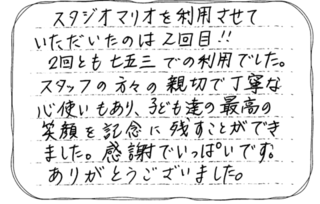 スタジオマリオを利用させて
いただいたのは2回目!!
2回とも七五三での利用でした。
スタッフの方々の親切で丁寧な
心使いもあり、子ども達の最高の
笑顔を記念に残すことができ
ました。感謝でいっぱいです。
ありがとうございました。